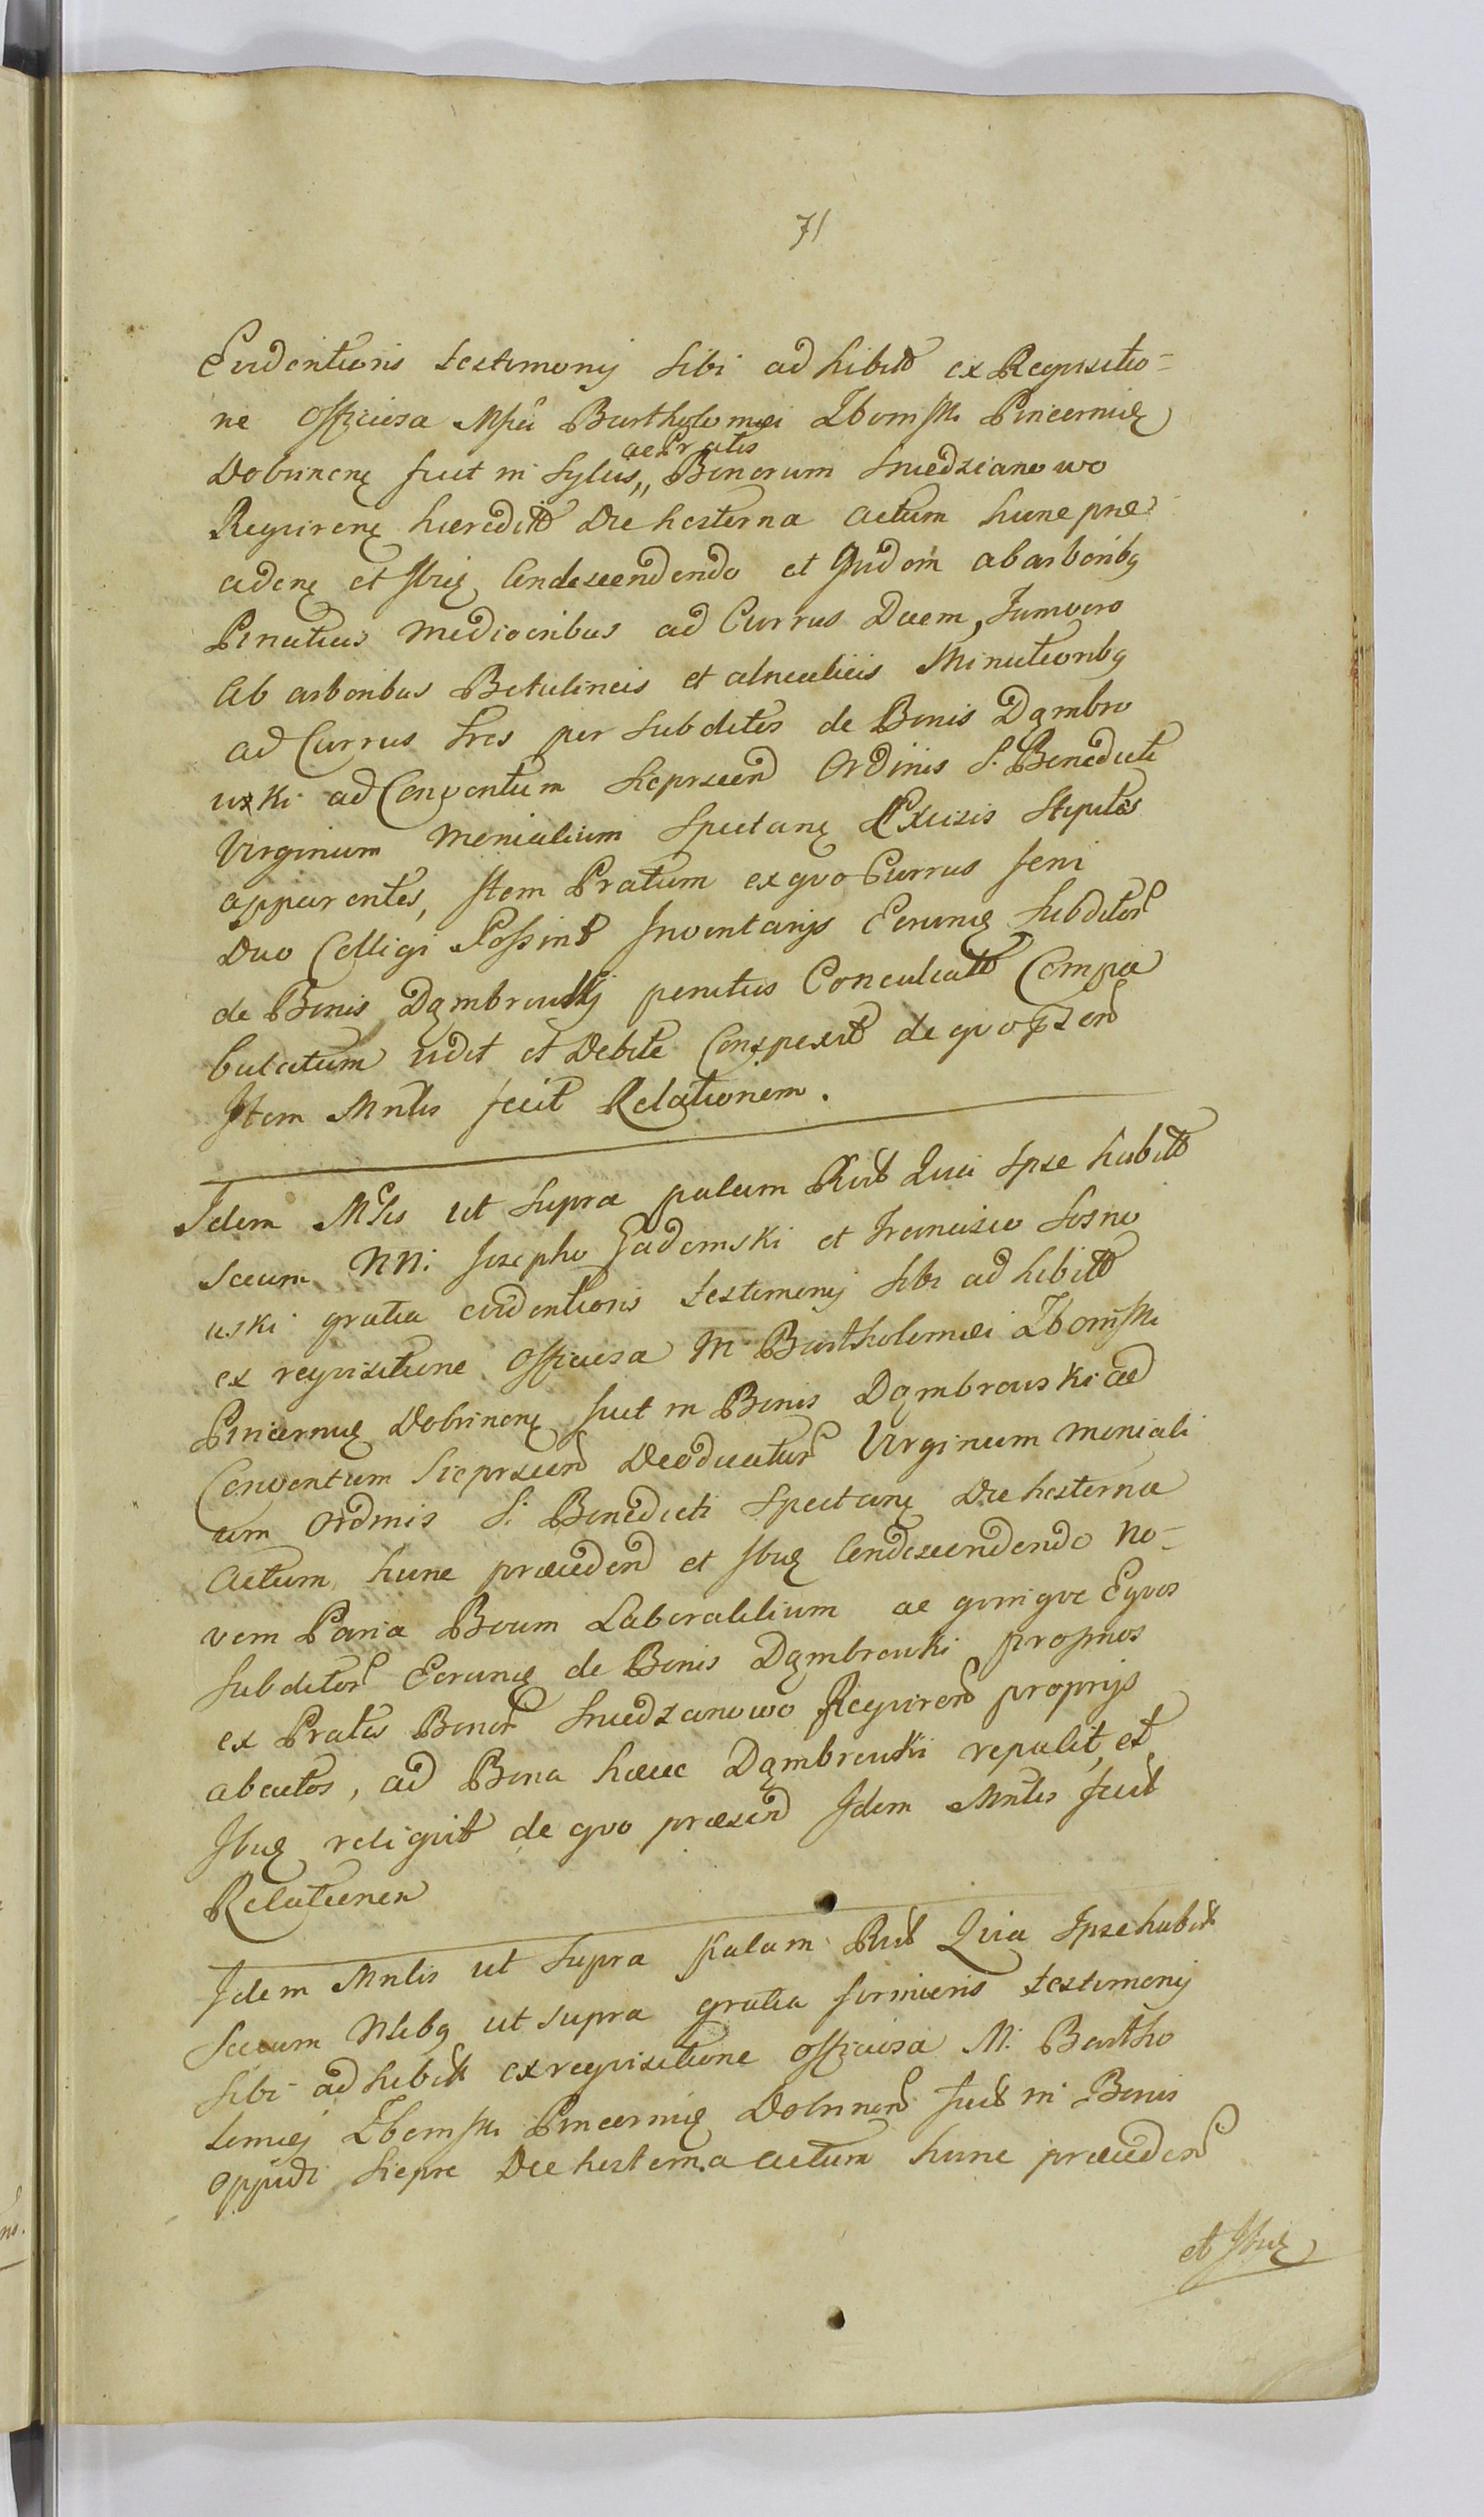 71
Evidentioris testimonij sibi adhibitt ex Requisitio-
ne Officiosa Mfci Bartholomęi Zbomski Pincernię
ac Pratis
Dobrinenę fuit in Sylvis,, Bonorum Sniedzianowo
Requirenę hæreditt Die hesterna actum hunc præ
cedenę et Ibię Condescendendo et Quidem ab arboribq
Pineticis mediocribus ad Currus Duem, Iam vero
Ab arboribus Betulineis et alnealicis Minutioribq
ad Currus tres per subditos de Bonis Dąmbro
uski ad Conventum Sieprscen Ordinis S. Benedicti
Virginum Monialium Spectanę Excisis Stipites
apparentes, Item Pratum ex quo Currus feni
Duo Colligi Possint Inventarijs Eorumę Subditor
de Bonis Dąmbrouskij penitus Conculcatt Compa
bulatum vidit et Debite Conspexit de quo Pzen
Item Mnlis fecit Relationem.
Idem Mlis ut Supra palam Rtt Quia Ipse habitt
secum NN: Josepho Gadomski et Francisco Sosno
uski gratia evidentioris testimonij sibi adhibitt
ex requisitione Officiosa M Bartholomęi Zbomski
Pincernię Dobrinenę fuit in Bonis Dąmbrouski ad
Conventum Sieprscen Deodicatar Virginum moniali
um Ordinis S: Benedicti Spectanę Die hesterna
Actum hunc præceden et Ibię Condescendendo No-
vem Paria Boum Laborabilium ac quinque Equos
Subditor Eorumę de Bonis Dąmbrouski proprios
ex Pratis Bonor Sniedzanowo Requiren proprijs
abactos, ad Bona hæc Dąmbrouski repulit, et
Ibię reliquit de quo præsen Idem Mnlis fecit
Relationem
Idem Mnlis ut Supra Palam Rtt Quia Ipse habitt
Secum Nlibq ut supra gratia firmioris testimonij
Sibi adhibitt ex requisitione officiosa M: Bartho
lomęi Zbomski Pincernię Dobrinen fuit in Bonis
Oppidi Siepre Die hesterna actum hunc præceden
et Ibię